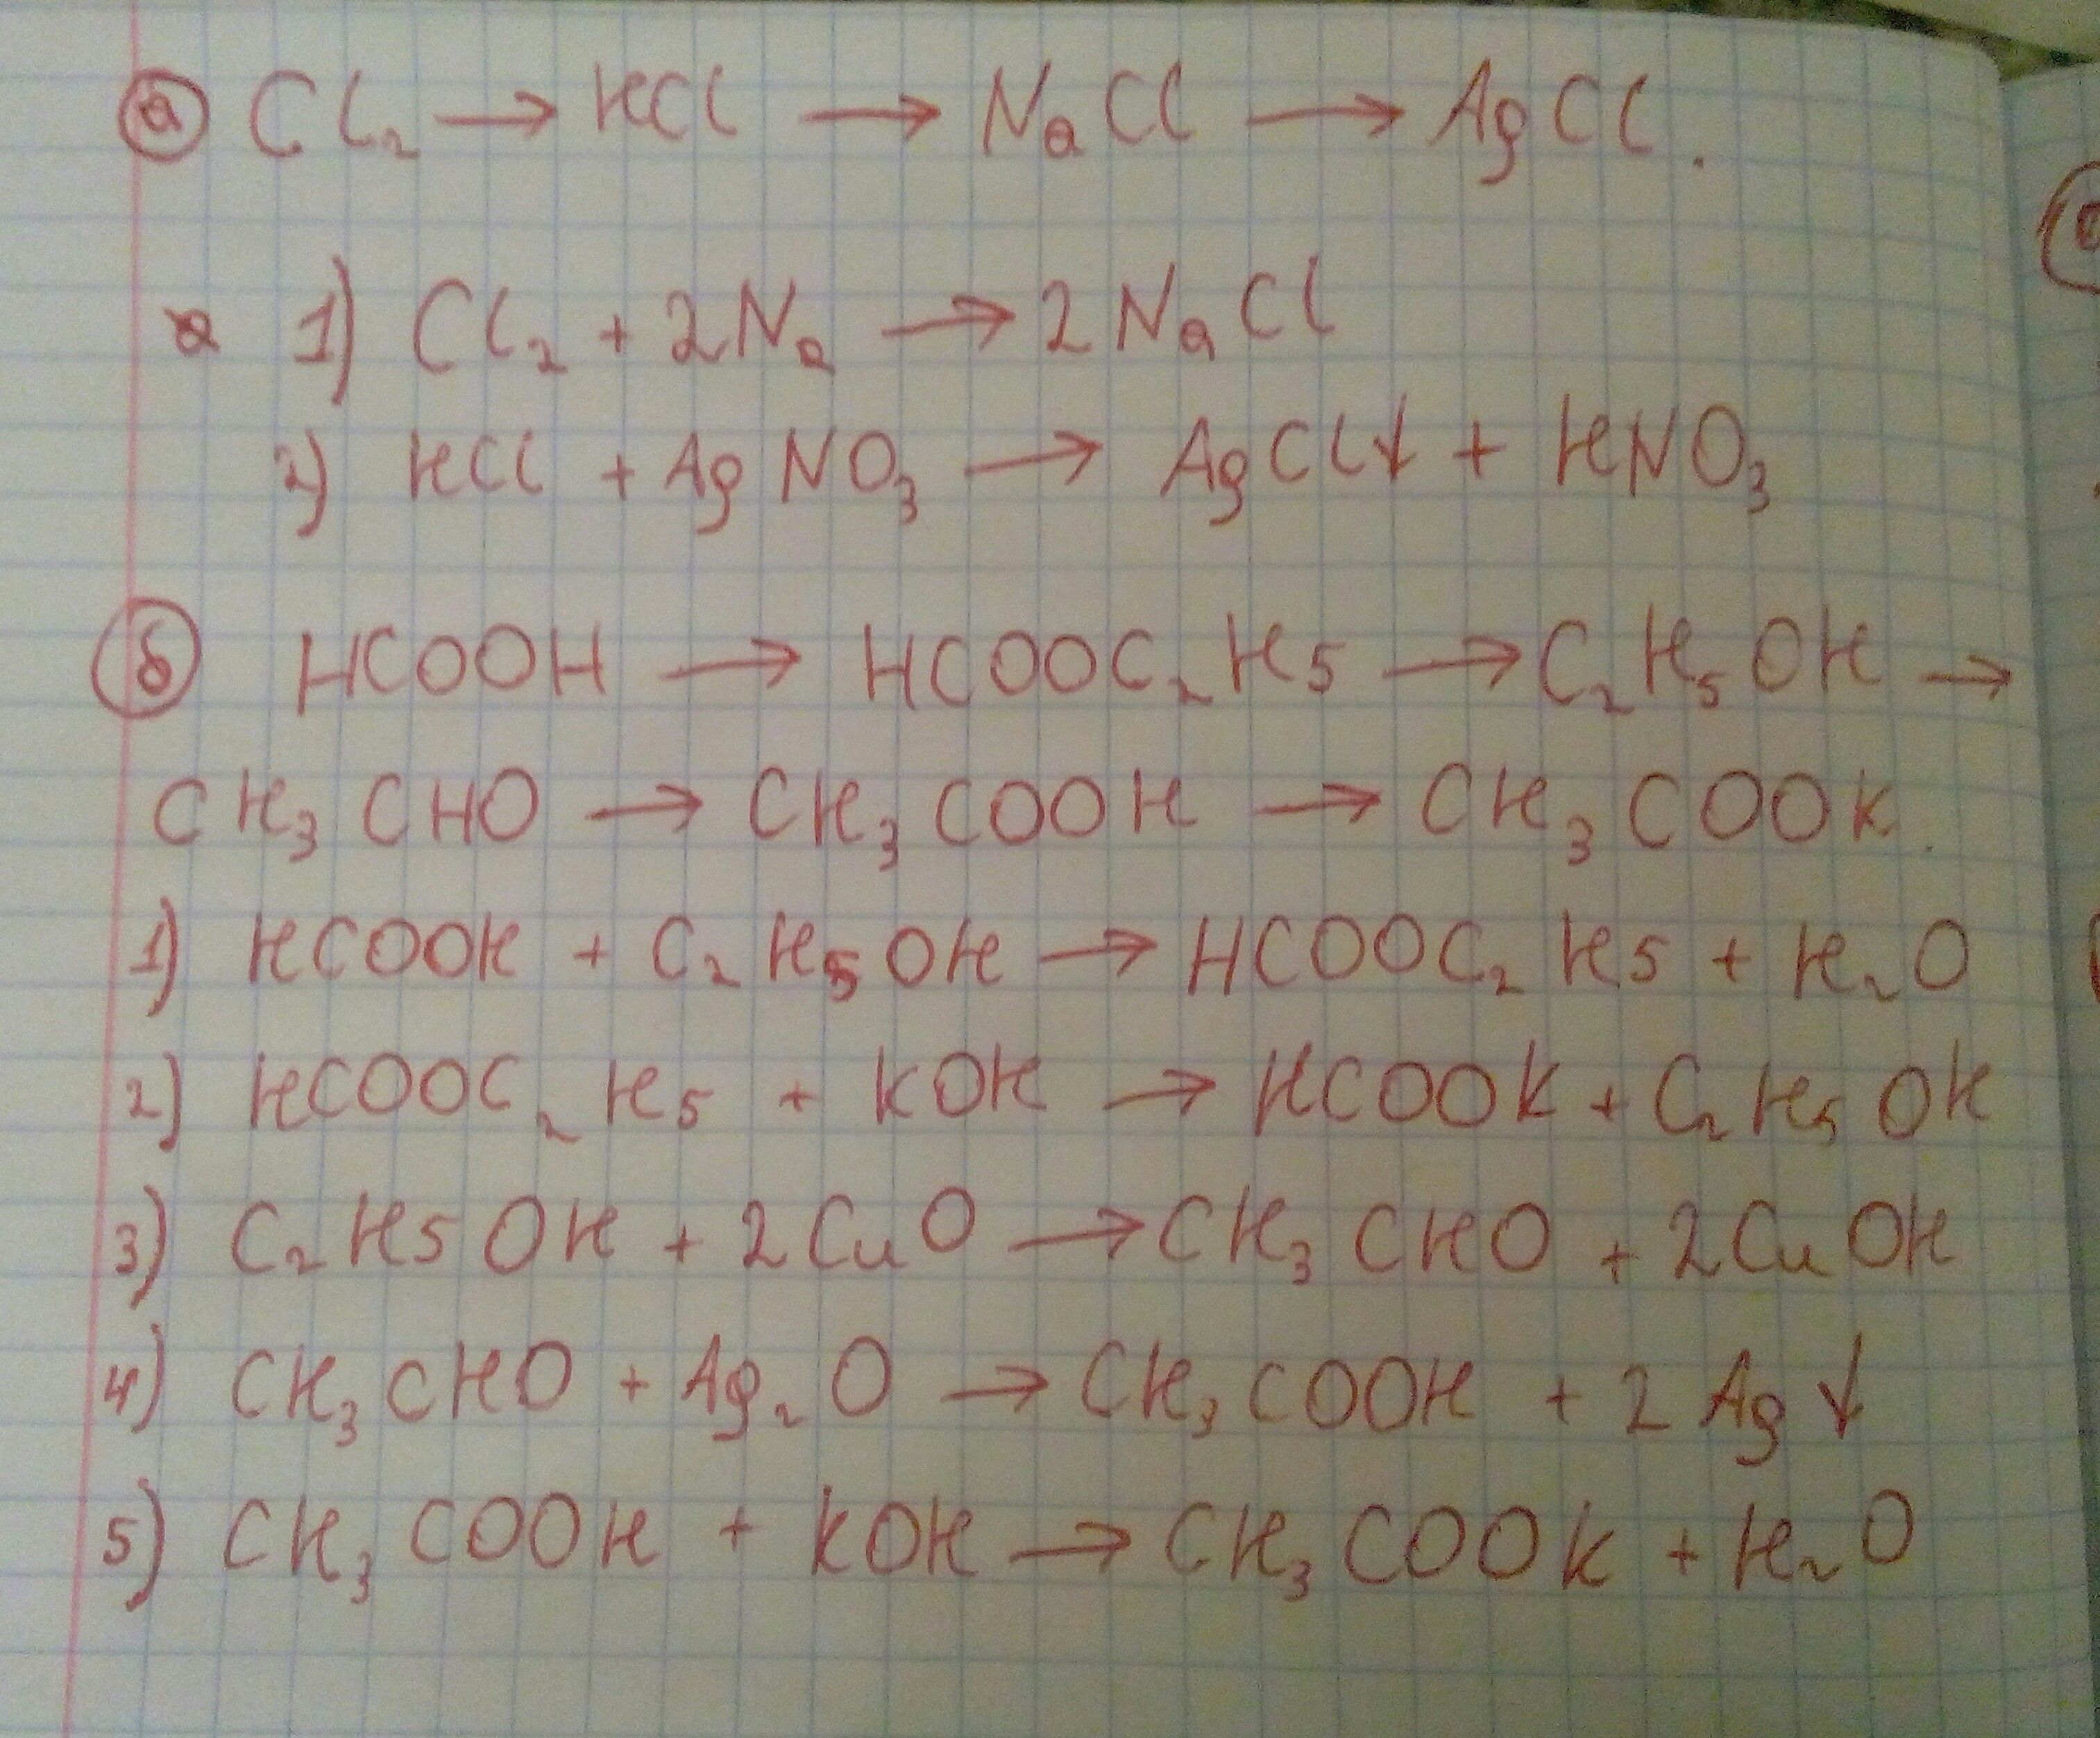 а Cl₂ → HCl → NaCl → AgCl.
1) Cl₂ + 2Na → 2NaCl
2) HCl + AgNO₃ → AgCl↓ + HNO₃
б HCOOH → HCOOC₂H5 → C₂H₅OH →
CH₃CHO → CH₃COOH → CH₃COOK.
1) HCOOH + C₂H₅OH → HCOOC₂H5 + H₂O
2) HCOOC₂H₅ + KOH → HCOOK + C₂H₅OH
3) C₂H5OH + 2CuO → CH₃CHO + 2CuOH
4) CH₃CHO + Ag₂O → CH₃COOH + 2Ag↓
5) CH₃COOH + KOH → CH₃COOK + H₂O